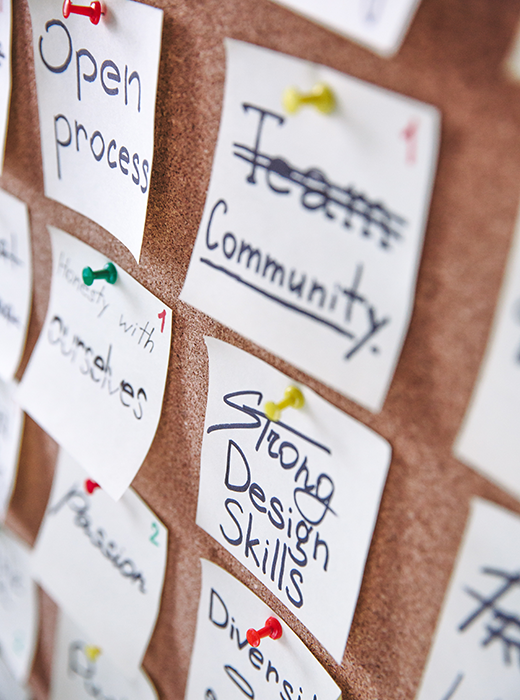 Open
process
Team
1
Community.
Honesty with
1
ourselves
Strong
Design
Skills
Passion
2
Diversity